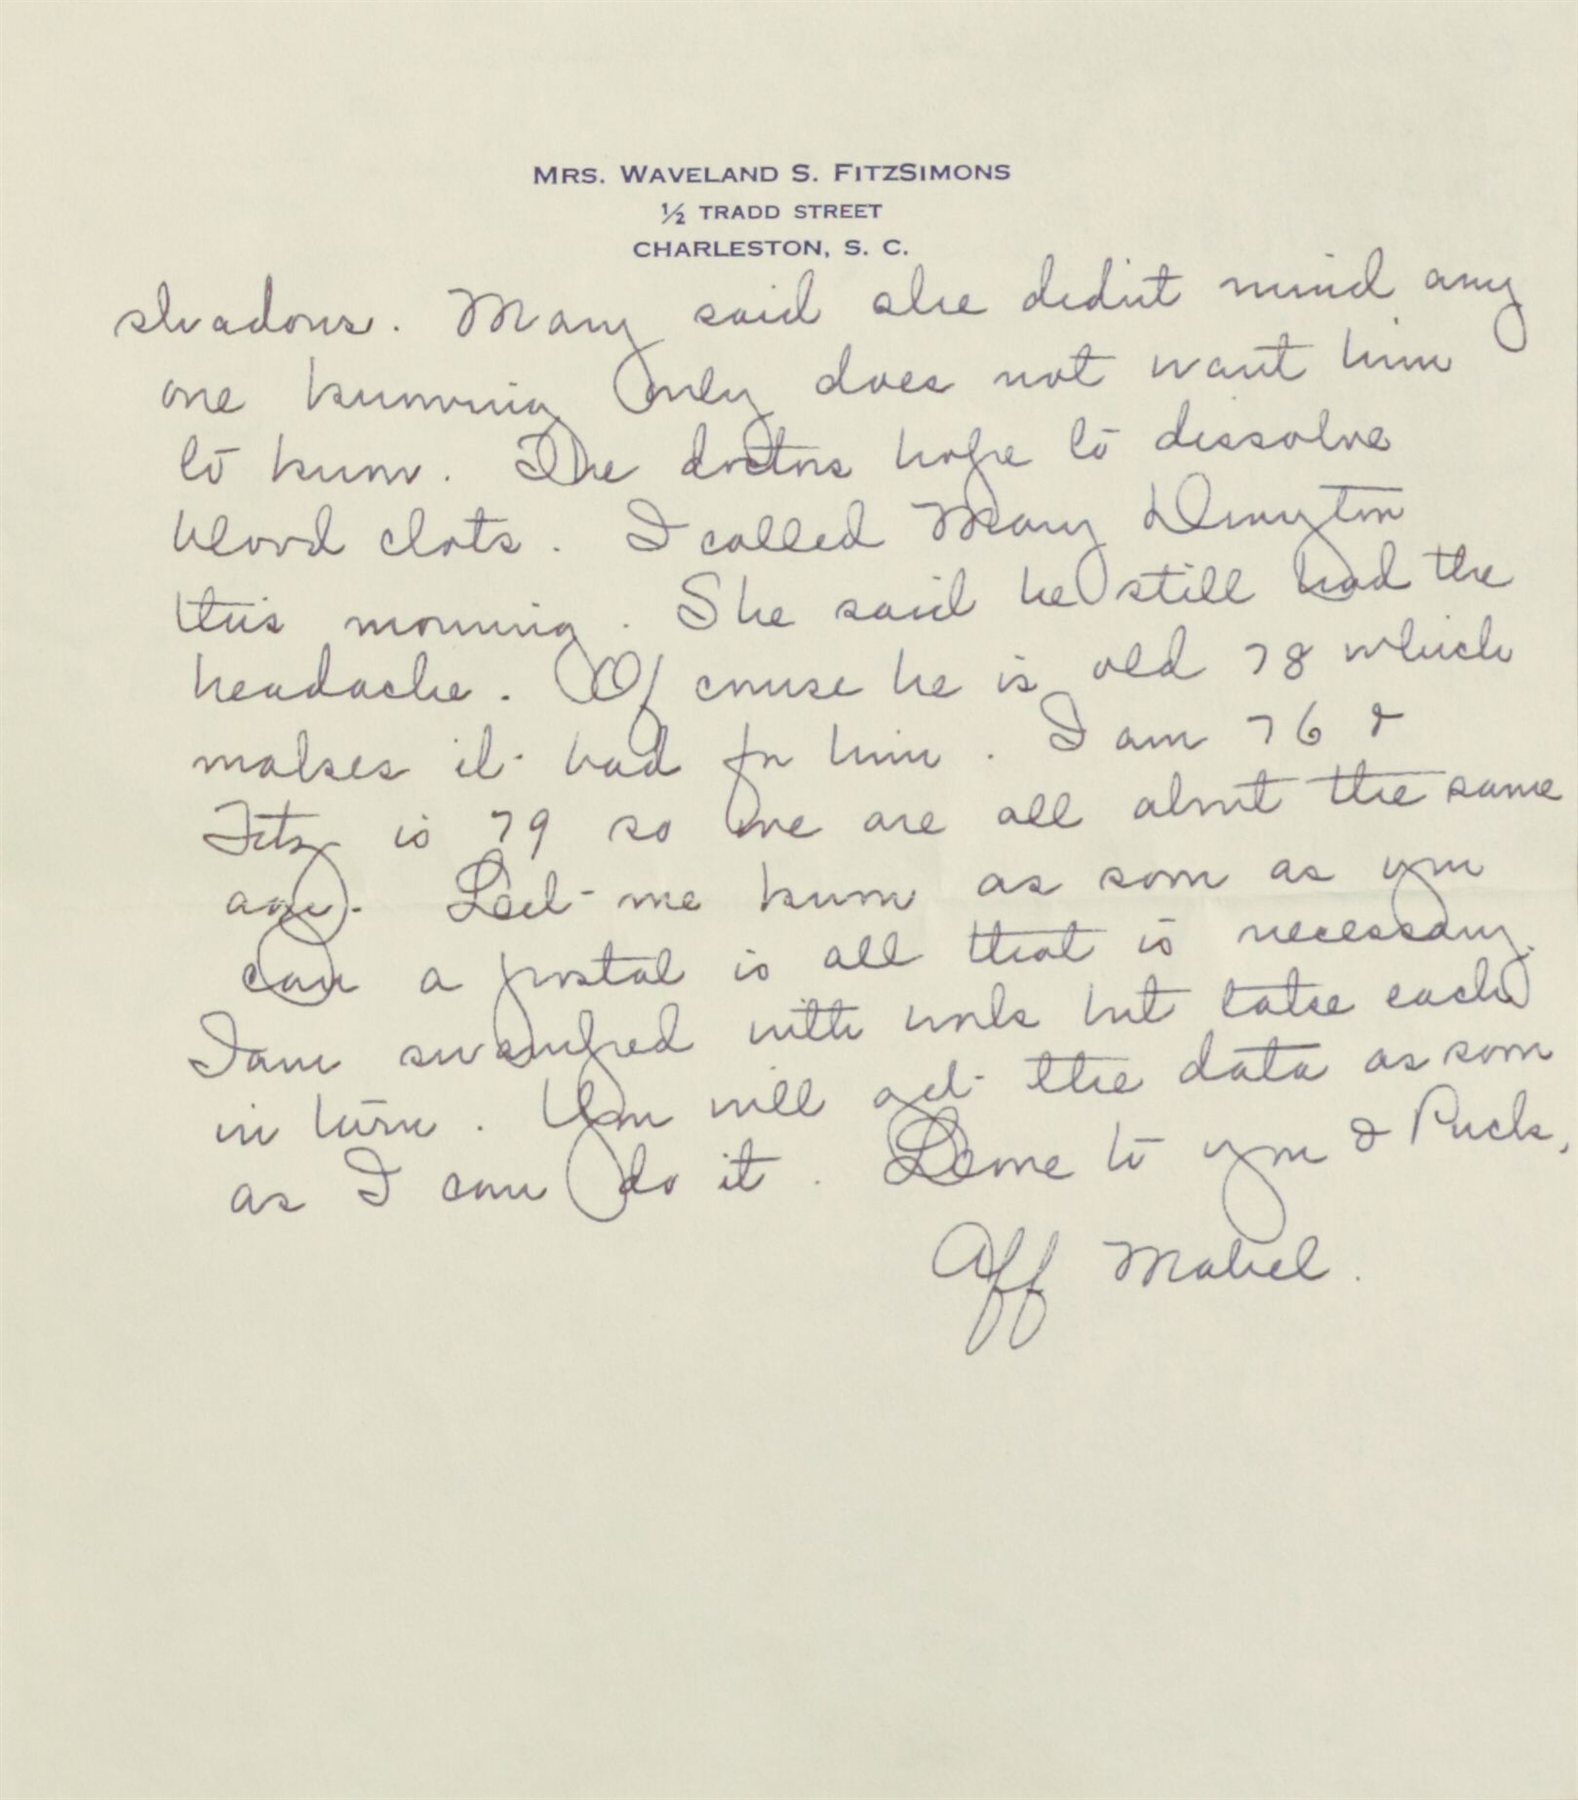 MRS. WAVELAND S. FITZSIMONS
½ TRADD STREET
CHARLESTON, S. C.
shadows. Mary said she didn't mind any
one knowing only does not want him
to know. The doctors hope to dissolve
blood clots. I called Mary Drayton
this morning. She said he still had the
headache. Of course he is old 78 which
makes it bad for him. I am 76 &
Fitz is 79 so we are all about the same
age. Let me know as soon as you
can a postal is all that is necessary.
I am swamped with work but take each
in turn. You will get the data as soon
as I can do it. Love to you & Puck,
Aff Mabel.